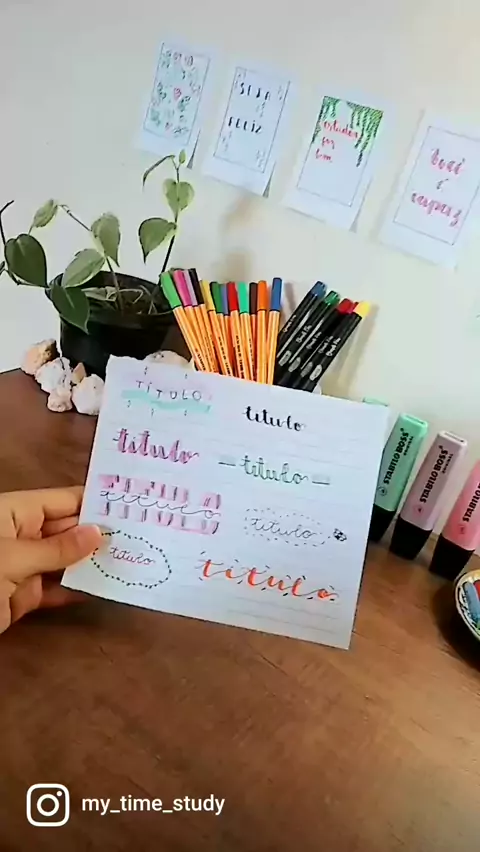 SEJA
FELIZ
estudar
por
você é
capaz
TÍTULO
título
título
título
título
título
título
título
STABILO BOSS
STABILO BOSS
STABILO
my_time_study